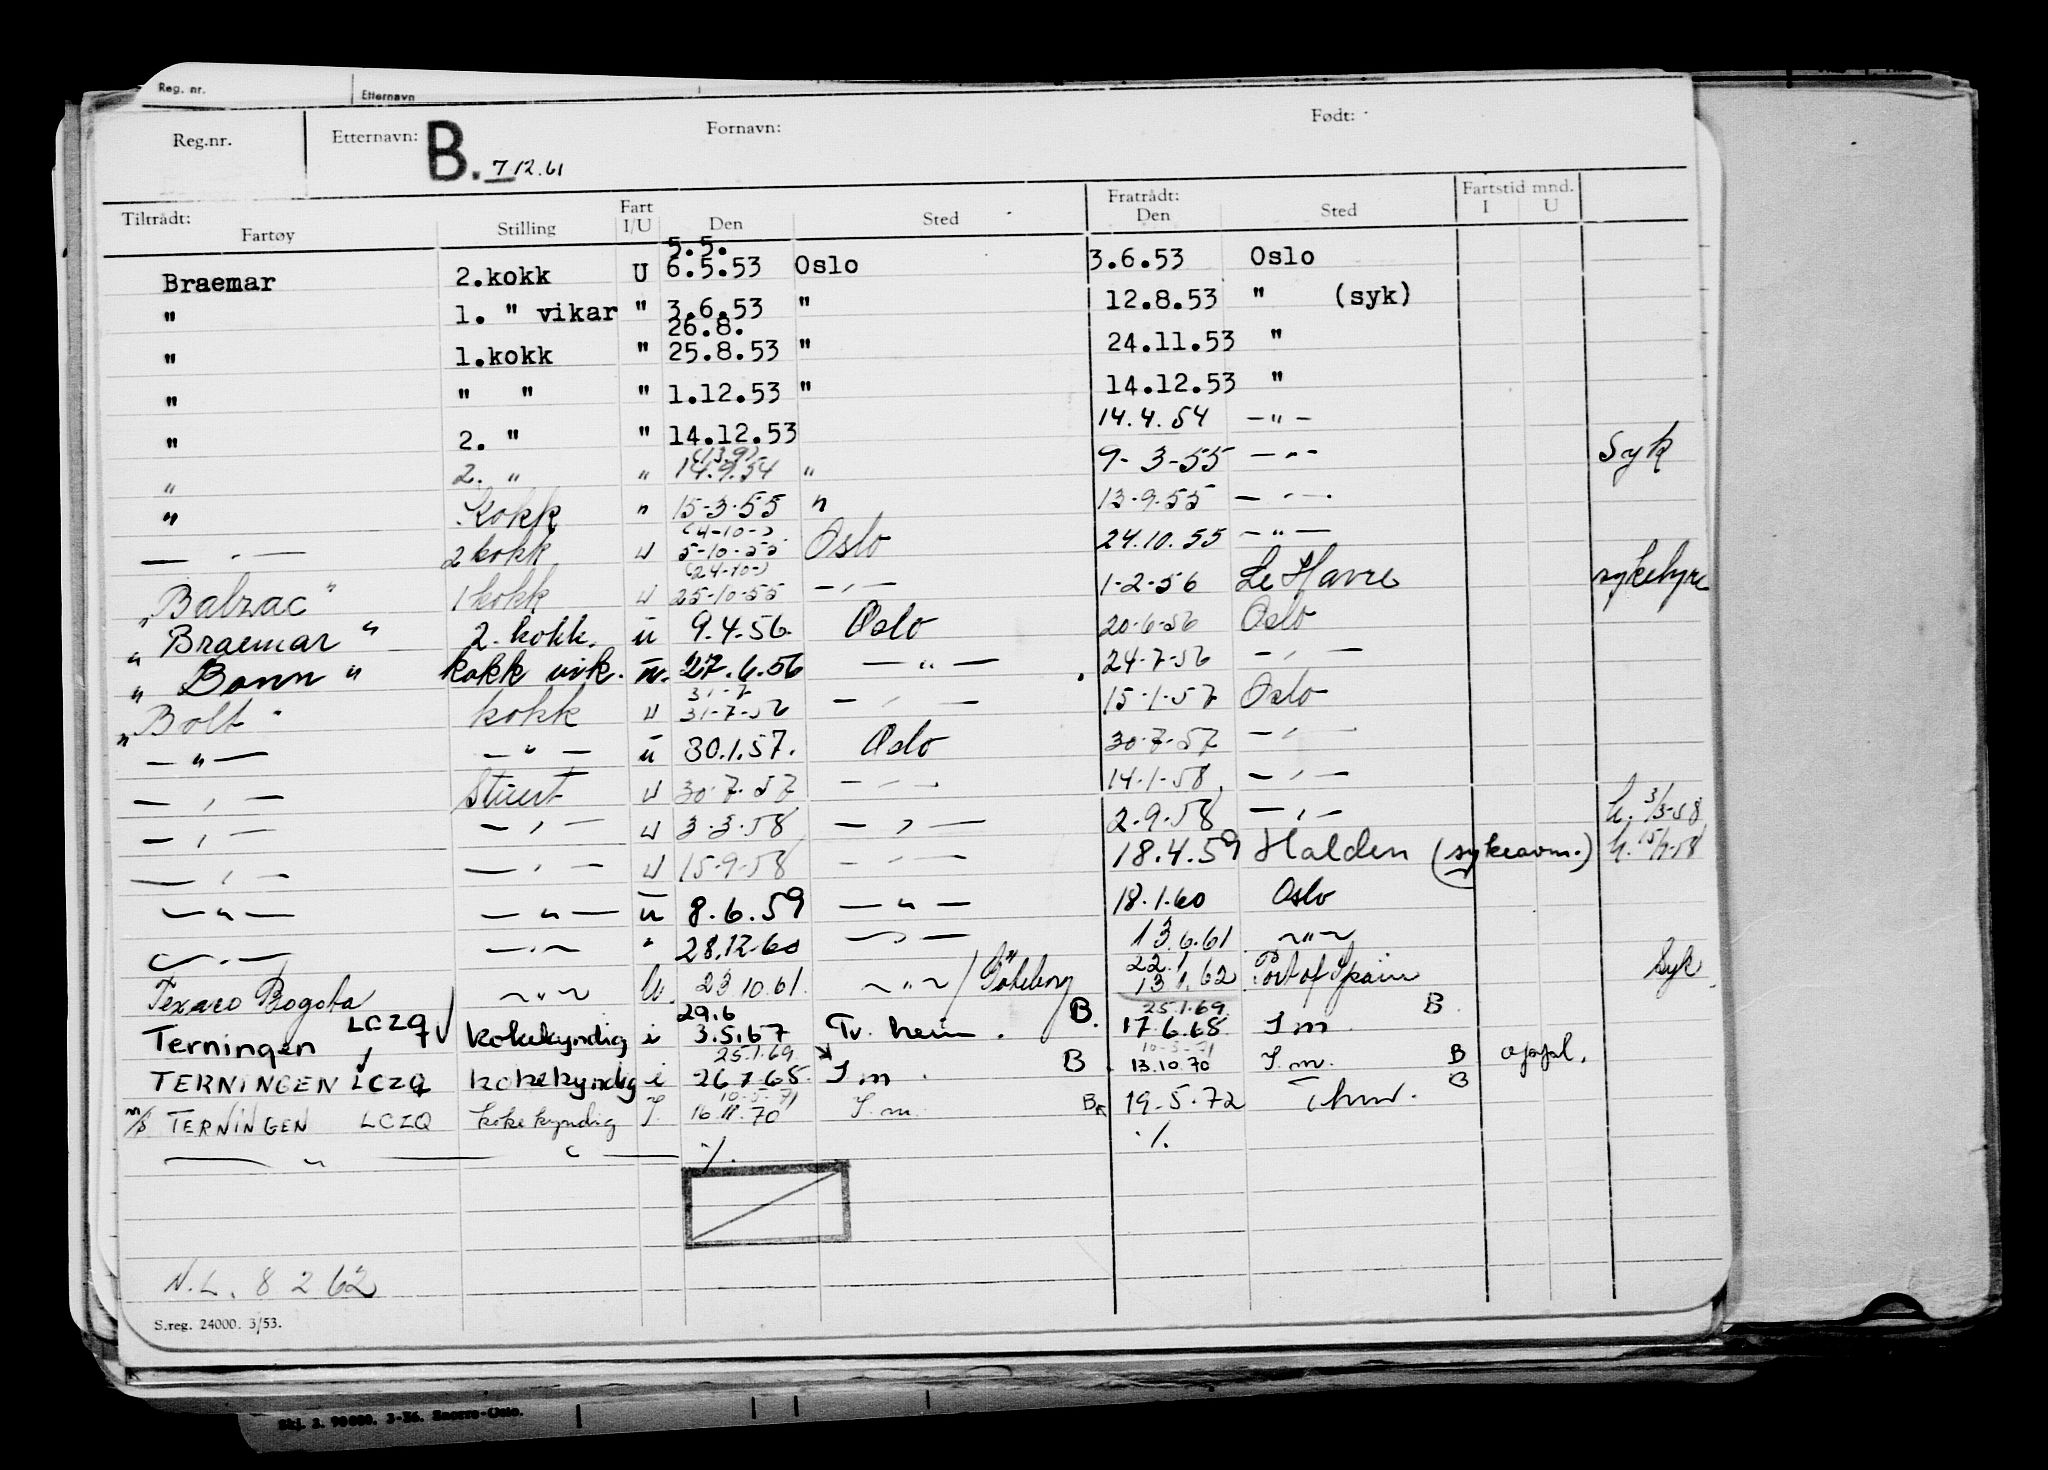 Reg. nr. Etternavn
Reg.nr. Etternavn: B. 7 12.61 Fornavn: Født:
Tiltrådt: Fart Fratrådt: Fartstid mnd.
Fartøy Stilling I/U Den Sted Den Sted I U
5.5.
Braemar 2.kokk U 6.5.53 Oslo 3.6.53 Oslo
" 1. " vikar " 3.6.53 " 12.8.53 " (syk)
26.8.
" 1.kokk " 25.8.53 " 24.11.53 "
" " " " 1.12.53 " 14.12.53 "
" 2. " " 14.12.53 14.4.54 —"—
(13.9)
" 2. " " 14.9.54 " 9-3-55 —"— Syk
" Kokk " 15-3-55 " 13-9-55 —"—
(4-10-)
—"— 2 kokk U 5-10-55 Oslo 24.10.55 —"—
(24-10-)
"Balzac" 1 kokk U 25-10-55 —"— 1-2-56 Le Havre sykehyre
"Braemar" 2. kokk. u 9.4.56. Oslo 20-6-56 Oslo
"Bonn" kokk vik. u. 27.6.56 —"— 24-7-56 —"—
31-7
"Bolt" kokk U 31-7-56 —"— 15-1-57 Oslo
—"— —"— u 30.1.57. Oslo 30-7-57 —"—
—"— Stuert U 30-7-57 —"— 14-1-58 —"—
—"— —"— U 3-3-58 —"— 2-9-58 —"— h. 3/3-58
—"— —"— U 15-9-58 —"— 18.4.59 Halden (sykeavm.) h. 15/9-58
—"— —"— u 8.6.59 —"— 18.1.60 Oslo
—"— —"— " 28.12.60 —"— 13.6.61 —"—
22.1
Texaco Bogota —"— U 23.10.61. —"— / Göteborg 13.1.62 Port of Spain Syk
29.6 25.1.69
Terningen LCZQ kokekyndig i 3.5.67 Tr. heim. B. 17.6.68 S m B.
25.1.69 10-5-71
TERNINGEN LCZQ kokekyndig i 26.7.68. S m. B. 13.10.70 S.m. B oppl.
10-5-71
m/s TERNINGEN LCZQ kokekyndig I. 16.11.70 S.m. B 19.5.72 Thm. B
—"— " — ./. ./.
N.L. 8 2 62
S.reg. 24000. 3/53.
Skj. 2. 90000. 3-56. Snorre-Oslo.